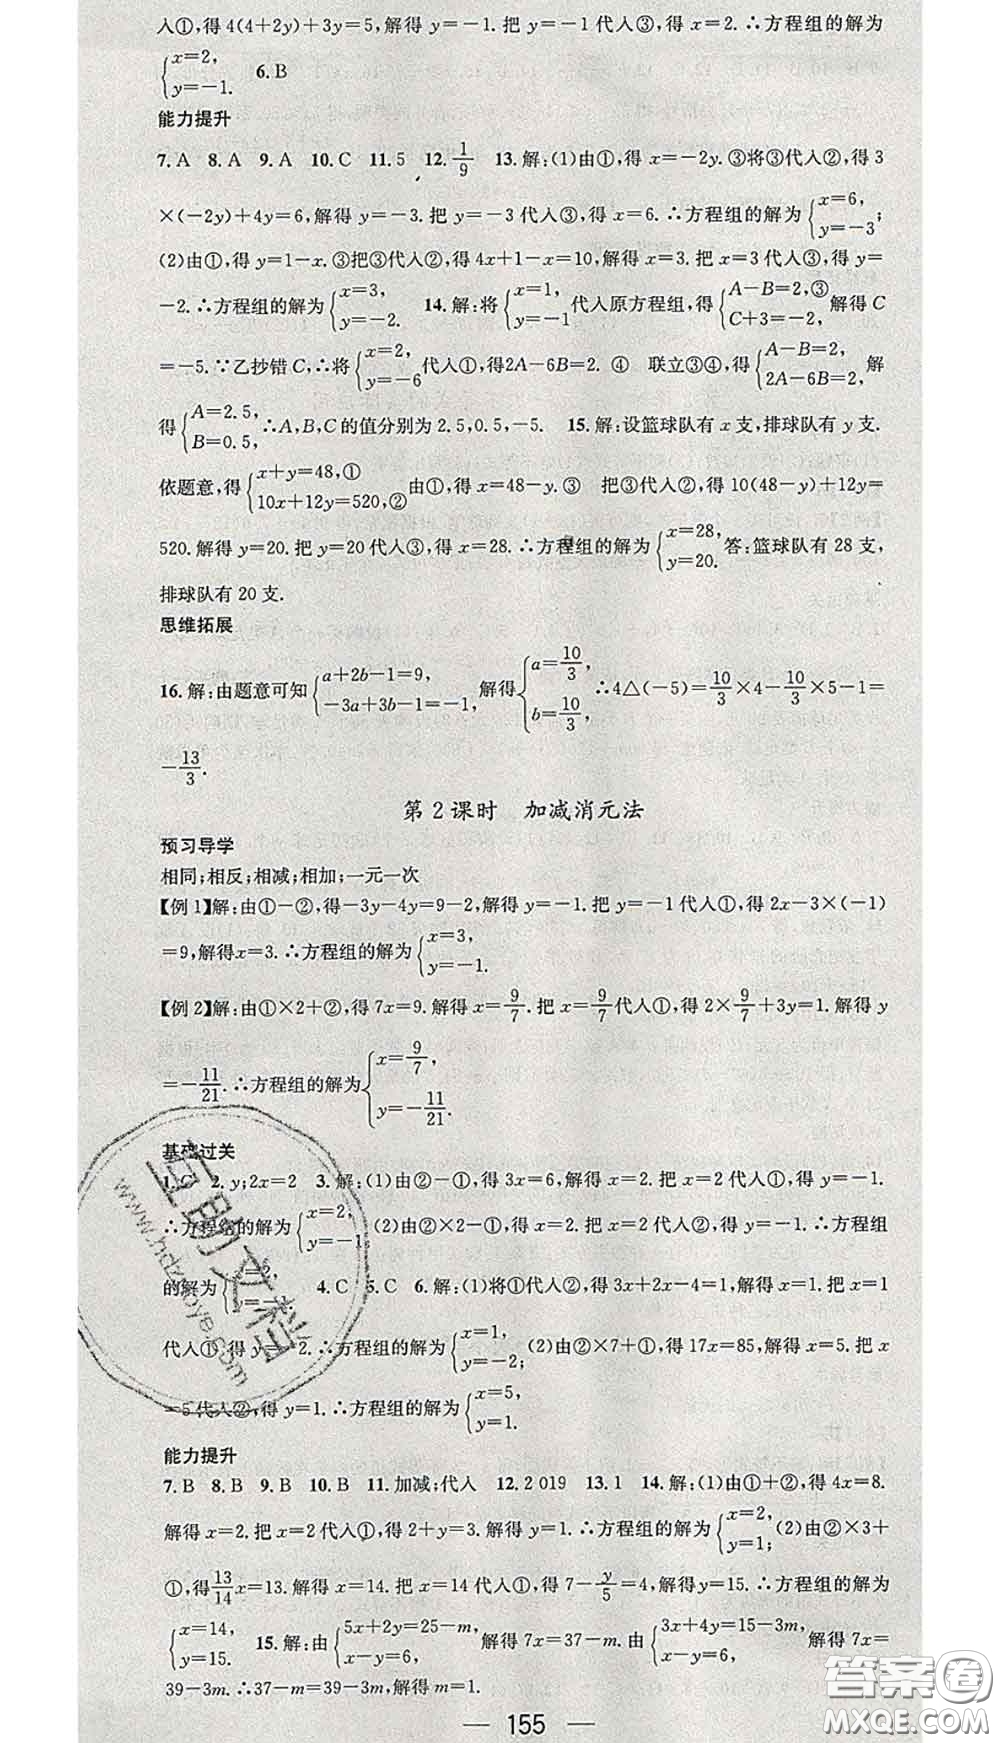 入①,得4(4+2y)+3y=5,解得y=-1.把y=-1代入③,得x=2.∴方程组的解为
{x=2, y=-1. 6.B
能力提升
7.A 8.A 9.A 10.C 11.5 12.1/9 13.解:(1)由①,得x=-2y.③将③代入②,得3
×(-2y)+4y=6,解得y=-3.把y=-3代入③,得x=6.∴方程组的解为{x=6, y=-3;
(2)由①,得y=1-x.③把③代入②,得4x+1-x=10,解得x=3.把x=3代入③,得y=
-2.∴方程组的解为{x=3, y=-2. 14.解:将{x=1, y=-1代入原方程组,得{A-B=2,③ C+3=-2,解得C
=-5.∵乙抄错C,∴将{x=2, y=-6代入①,得2A-6B=2. ④ 联立③④,得{A-B=2, 2A-6B=2,解
得{A=2.5, B=0.5,∴A,B,C的值分别为2.5,0.5,-5. 15.解:设篮球队有x支,排球队有y支.
依题意,得{x+y=48,① 10x+12y=520,②由①,得x=48-y.③ 把③代入②,得10(48-y)+12y=
520.解得y=20.把y=20代入③,得x=28.∴方程组的解为{x=28, y=20.答:篮球队有28支,
排球队有20支.
思维拓展
16.解:由题意可知{a+2b-1=9, -3a+3b-1=-1,解得{a=10/3, b=10/3,∴4△(-5)=10/3×4-10/3×5-1=
-13/3.
第2课时 加减消元法
预习导学
相同;相反;相减;相加;一元一次
【例1】解:由①-②,得-3y-4y=9-2,解得y=-1.把y=-1代入①,得2x-3×(-1)
=9,解得x=3.∴方程组的解为{x=3, y=-1.
【例2】解:由①×2+②,得7x=9.解得x=9/7.把x=9/7代入①,得2×9/7+3y=1.解得y
=-11/21.∴方程组的解为{x=9/7, y=-11/21.
基础过关
1.C 2.y;2x=2 3.解:(1)由②-①,得3x=6,解得x=2.把x=2代入①,得y=-1.
∴方程组的解为{x=2, y=-1;(2)由②×2-①,得5x=10.解得x=2.把x=2代入②,得y=-1.∴方程组
的解为 4.C 5.C 6.解:(1)将①代入②,得3x+2x-4=1,解得x=1.把x=1
代入①,得y=-2.∴方程组的解为{x=1, y=-2;(2)由②×7+①,得17x=85,解得x=5.把x
=5代入②,得y=1.∴方程组的解为{x=5, y=1.
能力提升
7.B 8.B 9.B 10.B 11.加减;代入 12.2 019 13.1 14.解:(1)由①+②,得4x=8.
解得x=2.把x=2代入①,得2+y=3.解得y=1.∴方程组的解为{x=2, y=1;(2)由②×3+
①,得13/14x=13.解得x=14.把x=14代入①,得7-y/5=4.解得y=15.∴方程组的解为
{x=14, y=15. 15.解:由{5x+2y=25-m, x-y=6,解得7x=37-m.由{3x+4y=15-3m, x-y=6,解得7x=
39-3m.∴37-m=39-3m,解得m=1.
155
互助文档
www.hdzuoye.com
答案圈
MXQE.COM